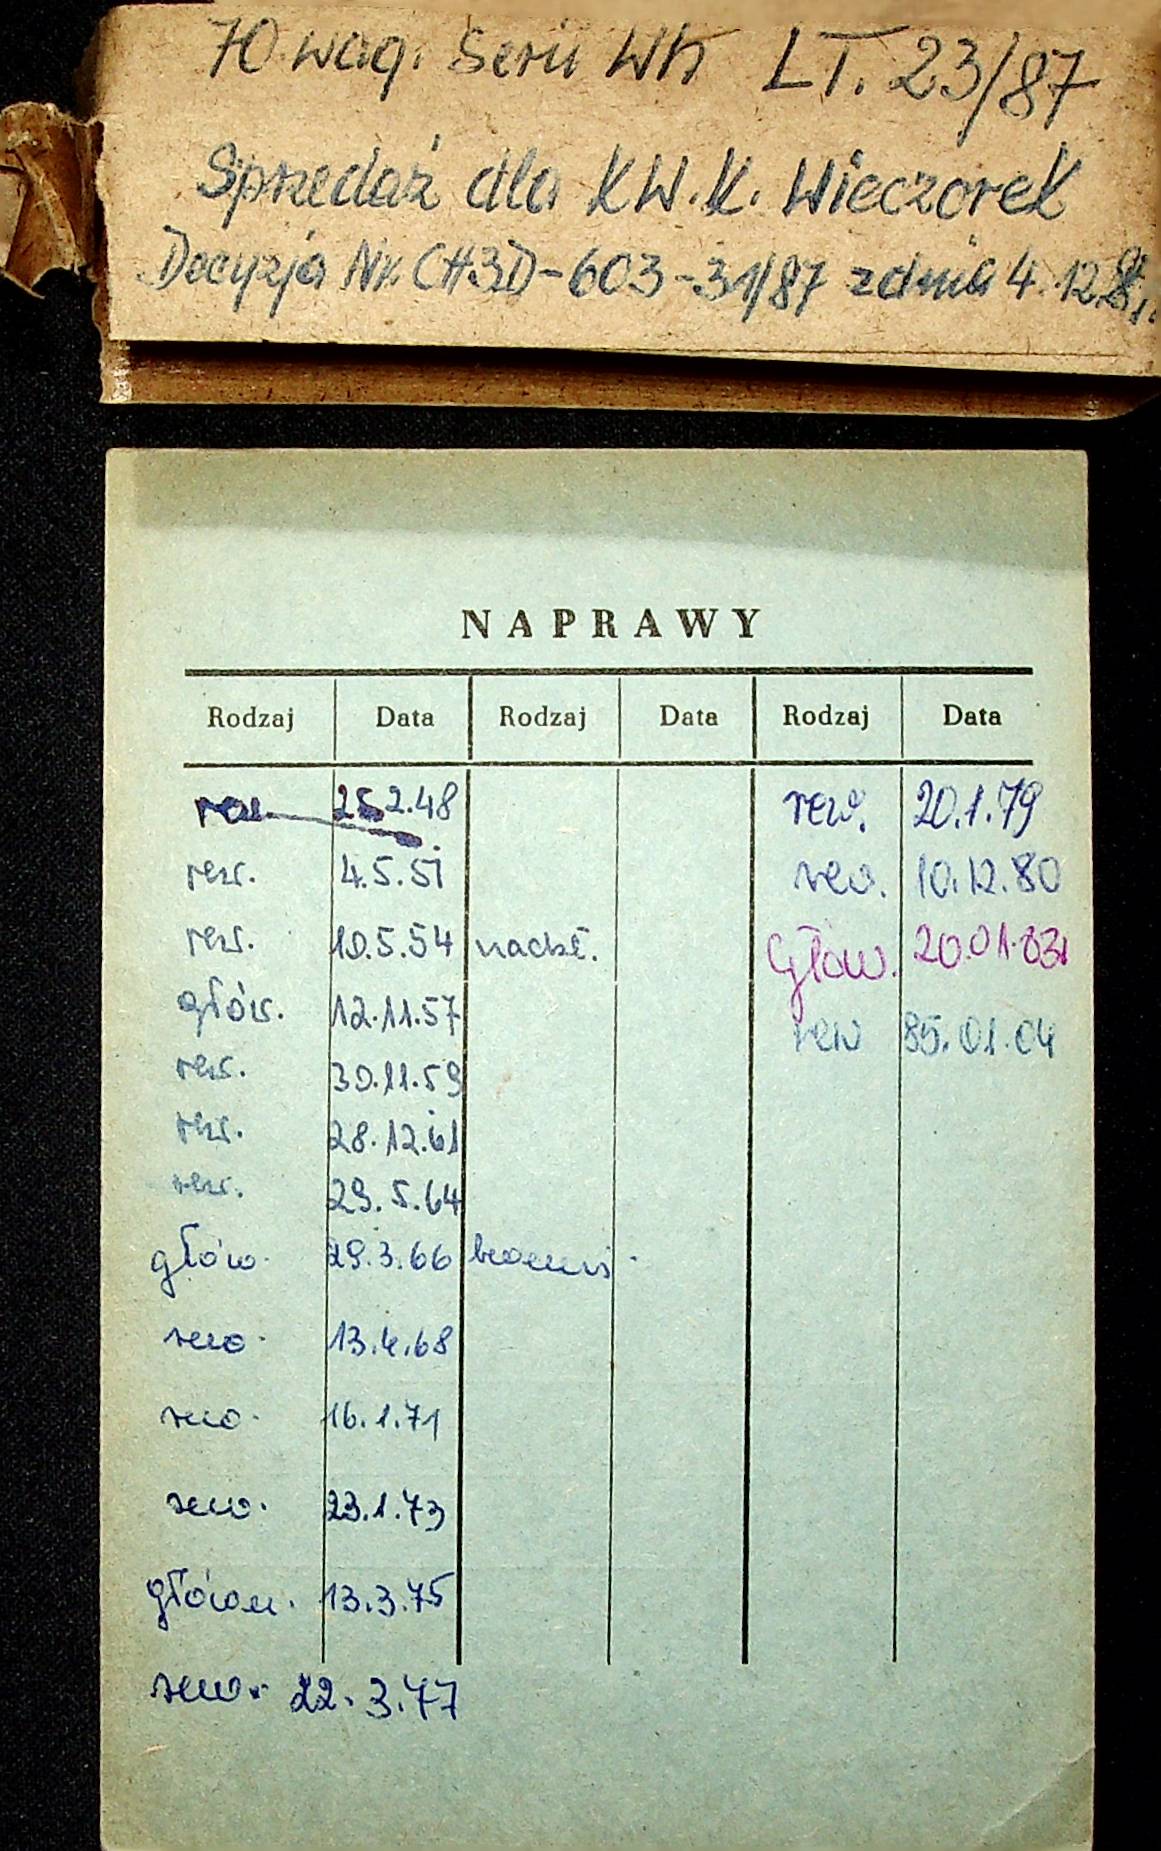 70 wag. Serii Wh LT. 23/87
Sprzedaż dla KW.K. Wieczorek
Decyzja Nr. CH3D-603-31/87 z dnia 4.12.
NAPRAWY
Rodzaj Data Rodzaj Data Rodzaj Data
2.48 rew. 20.1.79
rew. 4.5.51 rew. 10.12.80
rew. 10.5.54 Głow. 20.01.83
głów. 12.11.57 rew 85.01.04
rew. 30.11.59
rew. 28.12.61
rew. 29.5.64
głów. 29.3.66
rew. 13.4.68
rew. 16.1.71
rew. 23.1.73
główn. 13.3.75
rew. 22.3.77